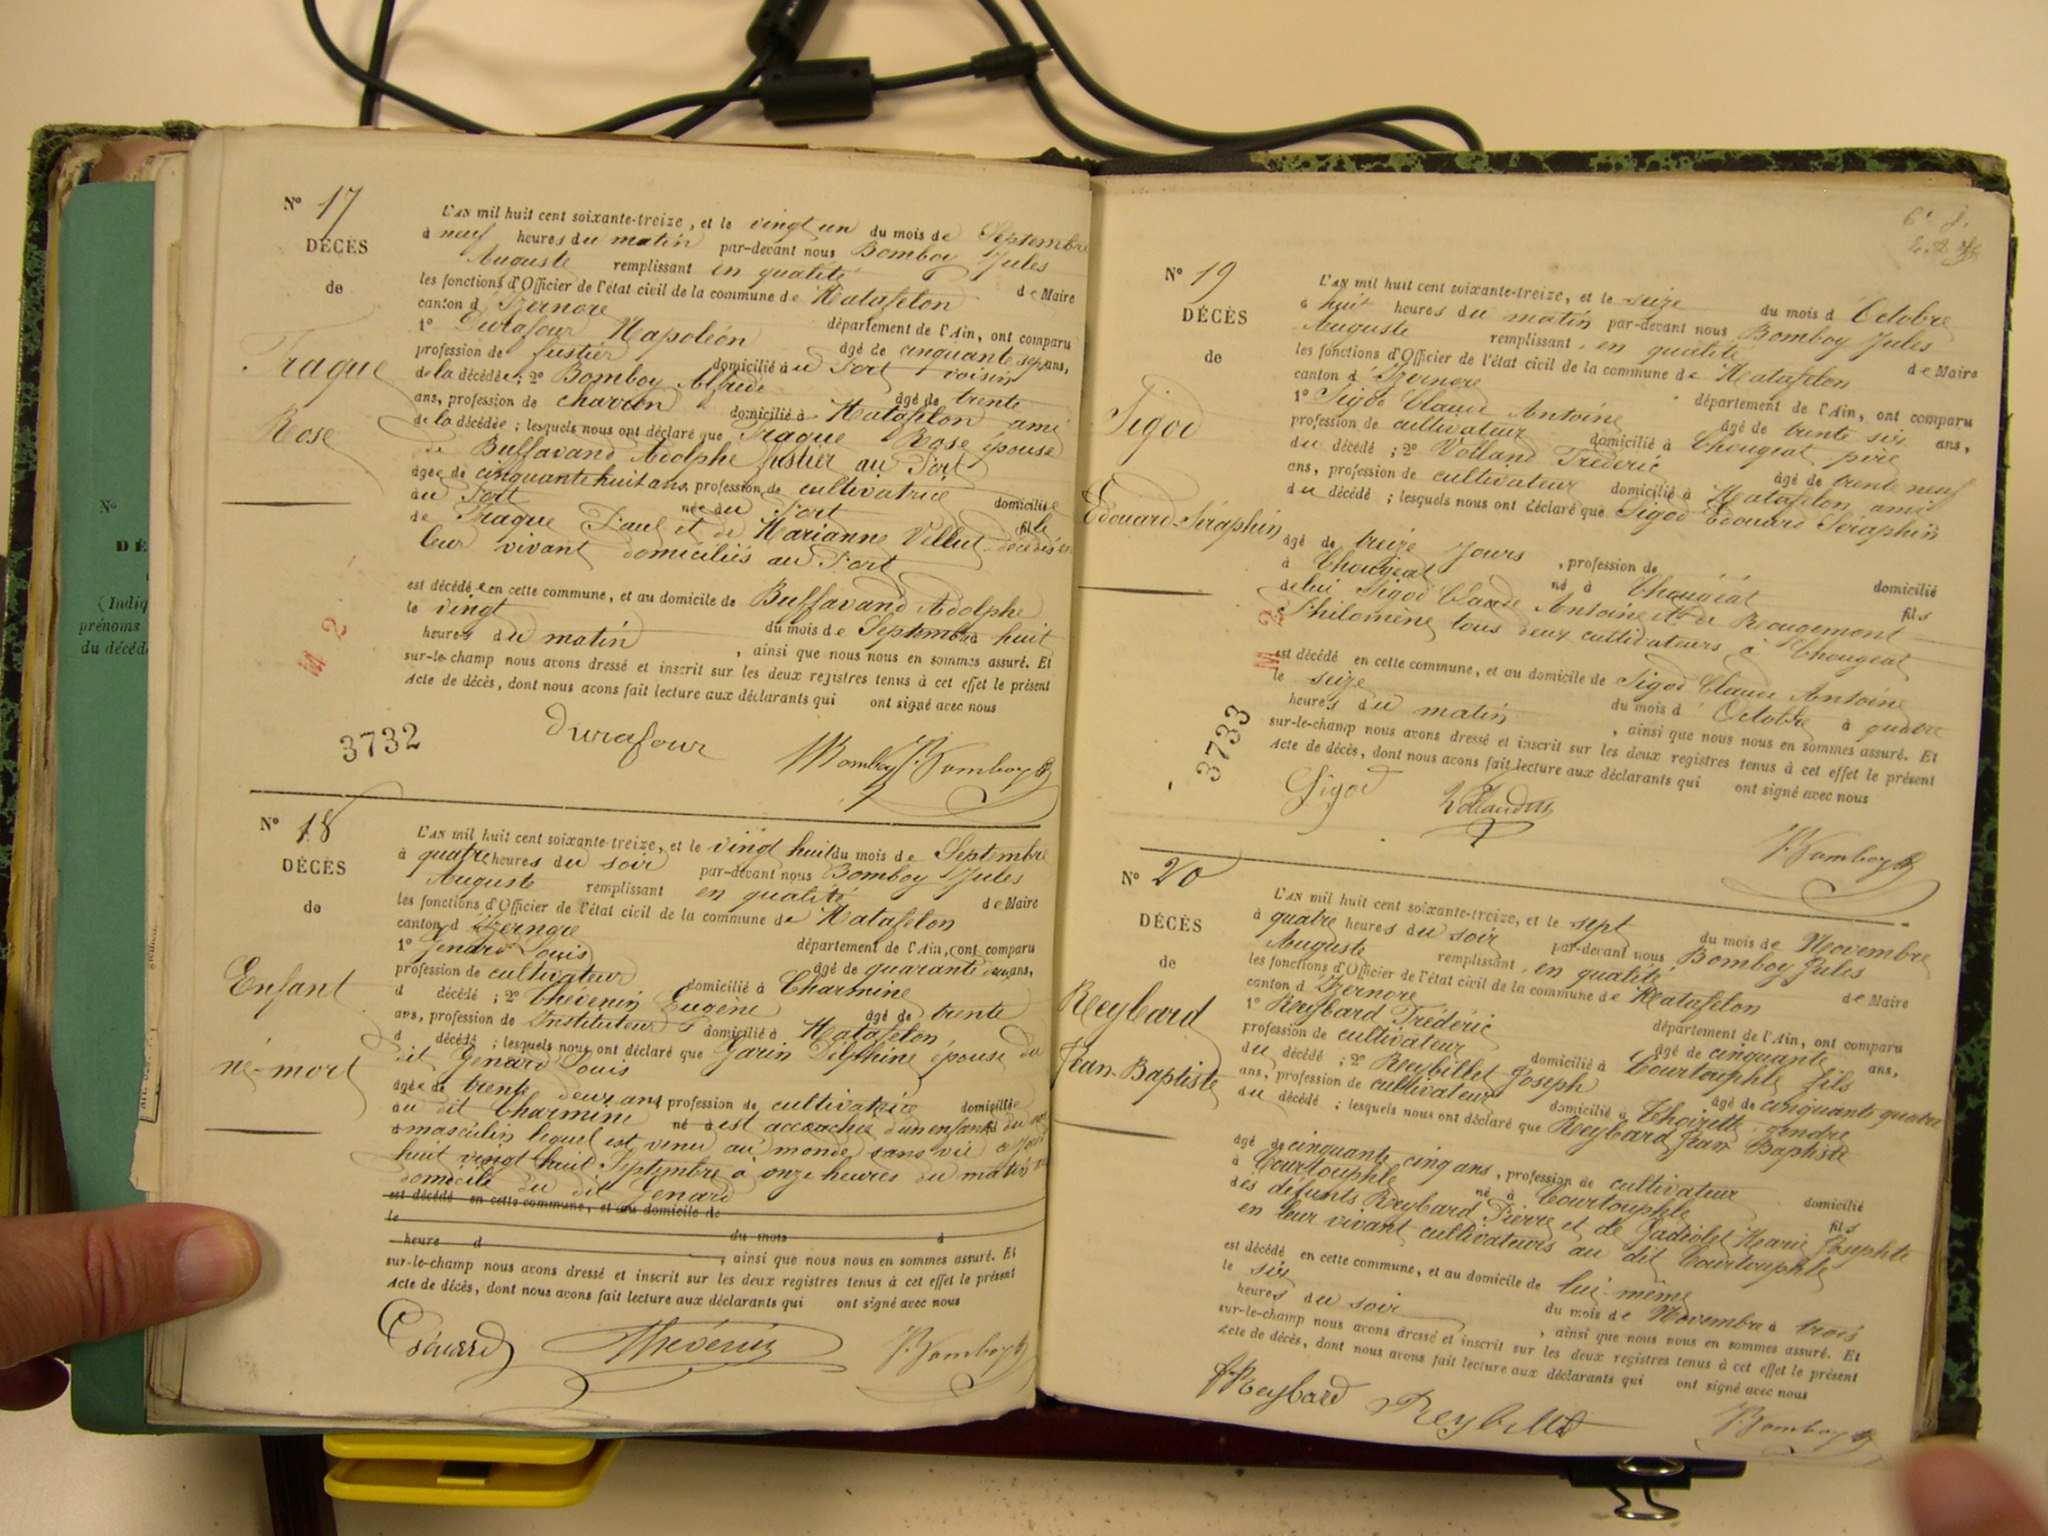 N° 17
DÉCÈS
de
Fraque
Rose
L'AN mil huit cent soixante-treize, et le vingt un du mois de Septembre
à neuf heures du matin par-devant nous Bomboy Jules
Auguste remplissant en qualité de Maire
les fonctions d'Officier de l'état civil de la commune de Matafelon
canton d'Izernore département de l'Ain, ont comparu
1° Durafour Napoléon âgé de cinquante sept ans,
profession de fustier domicilié au Port voisin
de la décédée; 2° Bomboy Alfrede âgé de trente
ans, profession de charron domicilié à Matafelon ami
de la décédée; lesquels nous ont déclaré que Fraque Rose épouse
de Buffavand Adolphe fustier au Port
âgée de cinquante huit ans, profession de cultivatrice domiciliée
au Port née au Port fille
de Fraque Paul et de Marianne Vellut décédés en
leur vivant domiciliés au Port
est décédée en cette commune, et au domicile de Buffavand Adolphe
le vingt du mois de Septembre à huit
heures du matin, ainsi que nous nous en sommes assuré. Et
sur-le-champ nous avons dressé et inscrit sur les deux registres tenus à cet effet le présent
Acte de décès, dont nous avons fait lecture aux déclarants qui ont signé avec nous
M 2
3732
Durafour
Bomboy
J. Bomboy
N° 18
DÉCÈS
de
Enfant
né-mort
L'AN mil huit cent soixante-treize, et le vingt huit du mois de Septembre
à quatre heures du soir par-devant nous Bomboy Jules
Auguste remplissant en qualité de Maire
les fonctions d'Officier de l'état civil de la commune de Matafelon
canton d'Izernore département de l'Ain, ont comparu
1° Genard Louis âgé de quarante deux ans,
profession de cultivateur domicilié à Charmine
d décédé; 2° Thévenin Eugène âgé de trente
ans, profession de Instituteur domicilié à Matafelon
d décédé; lesquels nous ont déclaré que Garin Delphine épouse du
dit Genard Louis
âgée de trente deux ans profession de cultivatrice domiciliée
au dit Charmine né à est accouchée d'un enfant du
masculin lequel est venu au monde sans vie
huit vingt huit Septembre à onze heures du matin
domicile du dit Genard
est décédé en cette commune, et au domicile de
le du mois d
heure d, ainsi que nous nous en sommes assuré. Et
sur-le-champ nous avons dressé et inscrit sur les deux registres tenus à cet effet le présent
Acte de décès, dont nous avons fait lecture aux déclarants qui ont signé avec nous
Génard
Thévenin
J. Bomboy
N° 19
DÉCÈS
de
Sigod
Edouard-Séraphin
L'AN mil huit cent soixante-treize, et le seize du mois d'Octobre
à huit heures du matin par-devant nous Bomboy Jules
Auguste remplissant en qualité de Maire
les fonctions d'Officier de l'état civil de la commune de Matafelon
canton d'Izernore département de l'Ain, ont comparu
1° Sigod Claude Antoine âgé de trente six ans,
profession de cultivateur domicilié à Chougeat père
du décédé; 2° Volland Frédéric âgé de trente neuf
ans, profession de cultivateur domicilié à Matafelon ami
du décédé; lesquels nous ont déclaré que Sigod Edouard Séraphin
âgé de treize jours, profession de domicilié
à Chougeat né à Chougeat fils
de lui Sigod Claude Antoine et de Rougemont
Philomène tous deux cultivateurs à Chougeat
est décédé en cette commune, et au domicile de Sigod Claude Antoine
le seize du mois d'Octobre à quatre
heures du matin, ainsi que nous nous en sommes assuré. Et
sur-le-champ nous avons dressé et inscrit sur les deux registres tenus à cet effet le présent
Acte de décès, dont nous avons fait lecture aux déclarants qui ont signé avec nous
M 2
3733
Sigod
Volland
J. Bomboy
N° 20
DÉCÈS
de
Reybard
Jean-Baptiste
L'AN mil huit cent soixante-treize, et le sept du mois de Novembre
à quatre heures du soir par-devant nous Bomboy Jules
Auguste remplissant en qualité de Maire
les fonctions d'Officier de l'état civil de la commune de Matafelon
canton d'Izernore département de l'Ain, ont comparu
1° Reybard Frédéric âgé de cinquante ans,
profession de cultivateur domicilié à Courtouphle fils
du décédé; 2° Reybillet Joseph âgé de cinquante quatre
ans, profession de cultivateur domicilié à Thoirette gendre
du décédé; lesquels nous ont déclaré que Reybard Jean Baptiste
âgé de cinquante cinq ans, profession de cultivateur domicilié
à Courtouphle né à Courtouphle fils
des défunts Reybard Pierre et de Gadiolet Marie Josephte
en leur vivant cultivateurs au dit Courtouphle
est décédé en cette commune, et au domicile de lui-même
le six du mois de Novembre à trois
heures du soir, ainsi que nous nous en sommes assuré. Et
sur-le-champ nous avons dressé et inscrit sur les deux registres tenus à cet effet le présent
Acte de décès, dont nous avons fait lecture aux déclarants qui ont signé avec nous
Reybard
Reybillet
J. Bomboy
N°
DÉ
(Indiq
prénoms
du décéd